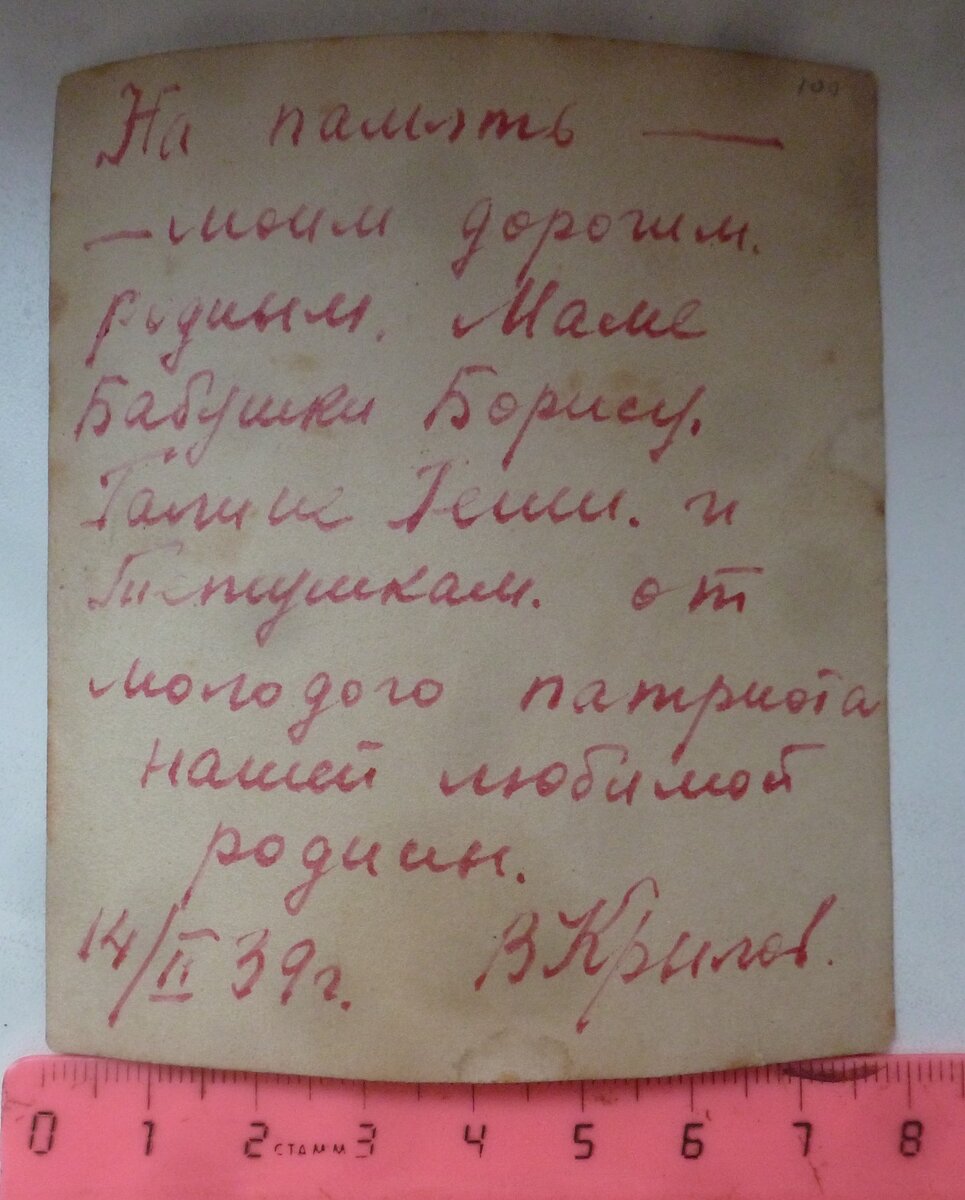 100
На память —
— моим дорогим.
родным. Маме
Бабушки Борису.
Галинк Гении. и
Тетушкам. от
молодого патриота
нашей любимой
родины.
14/II 39г. ВКрылов.
0 1 2 СТАММ 3 4 5 6 7 8